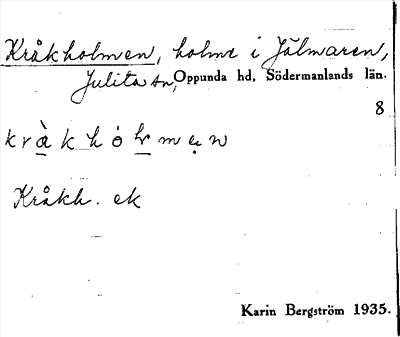 Kråkholmen, holme i Jälmaren,
Julita sn, Oppunda hd, Södermanlands län.
8
Kråkh. ek
Karin Bergström 1935.